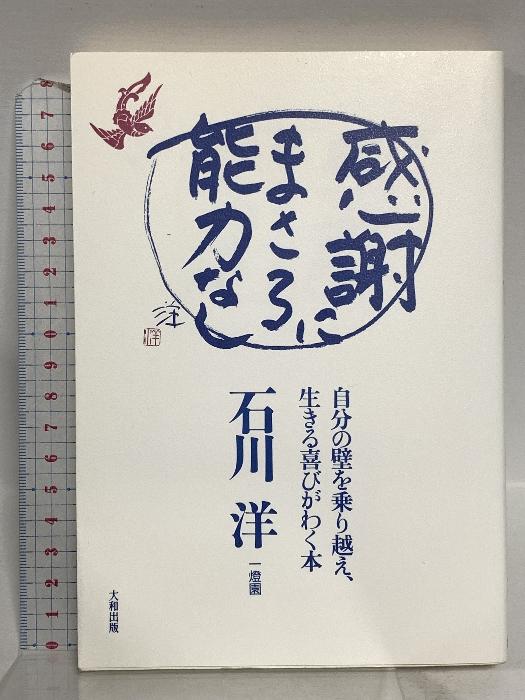 感謝に
まさる
能力なし
洋
洋
自分の壁を乗り越え、
生きる喜びがわく本
石川 洋
一燈園
大和出版
8
7
6
5
4
3
2
1
0
9
8
7
6
5
4
3
2
1
0